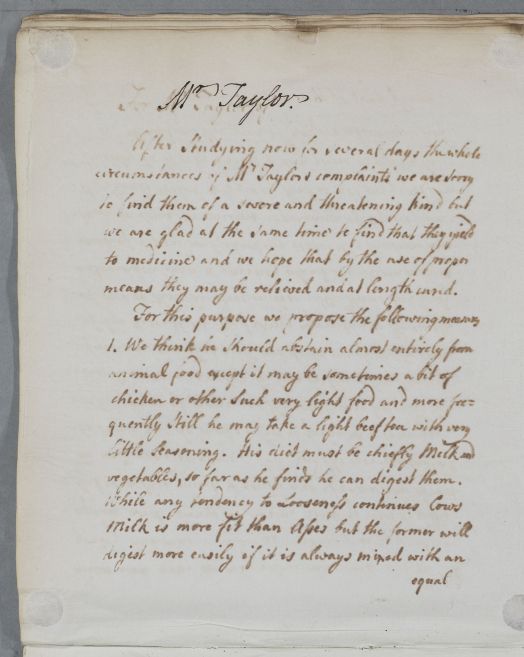 Mr Taylor.
After Studying now for several days the whole
circumstances of Mr Taylors complaints we are sorry
to find them of a severe and threatening kind but
we are glad at the same time to find that they yield
to medicine and we hope that by the use of proper
means they may be relieved and at length cured.
For this purpose we propose the following measures
1. We think he should abstain almost entirely from
animal food except it may be sometimes a bit of
chicken or other such very light food and more fre=
quently still he may take a light beef tea with very
little Seasoning. His diet must be chiefly Milk and
vegetables, so far as he finds he can digest them.
While any tendency to Looseness continues Cows
Milk is more fit than Asses but the former will
digest more easily if it is always mixed with an
equal